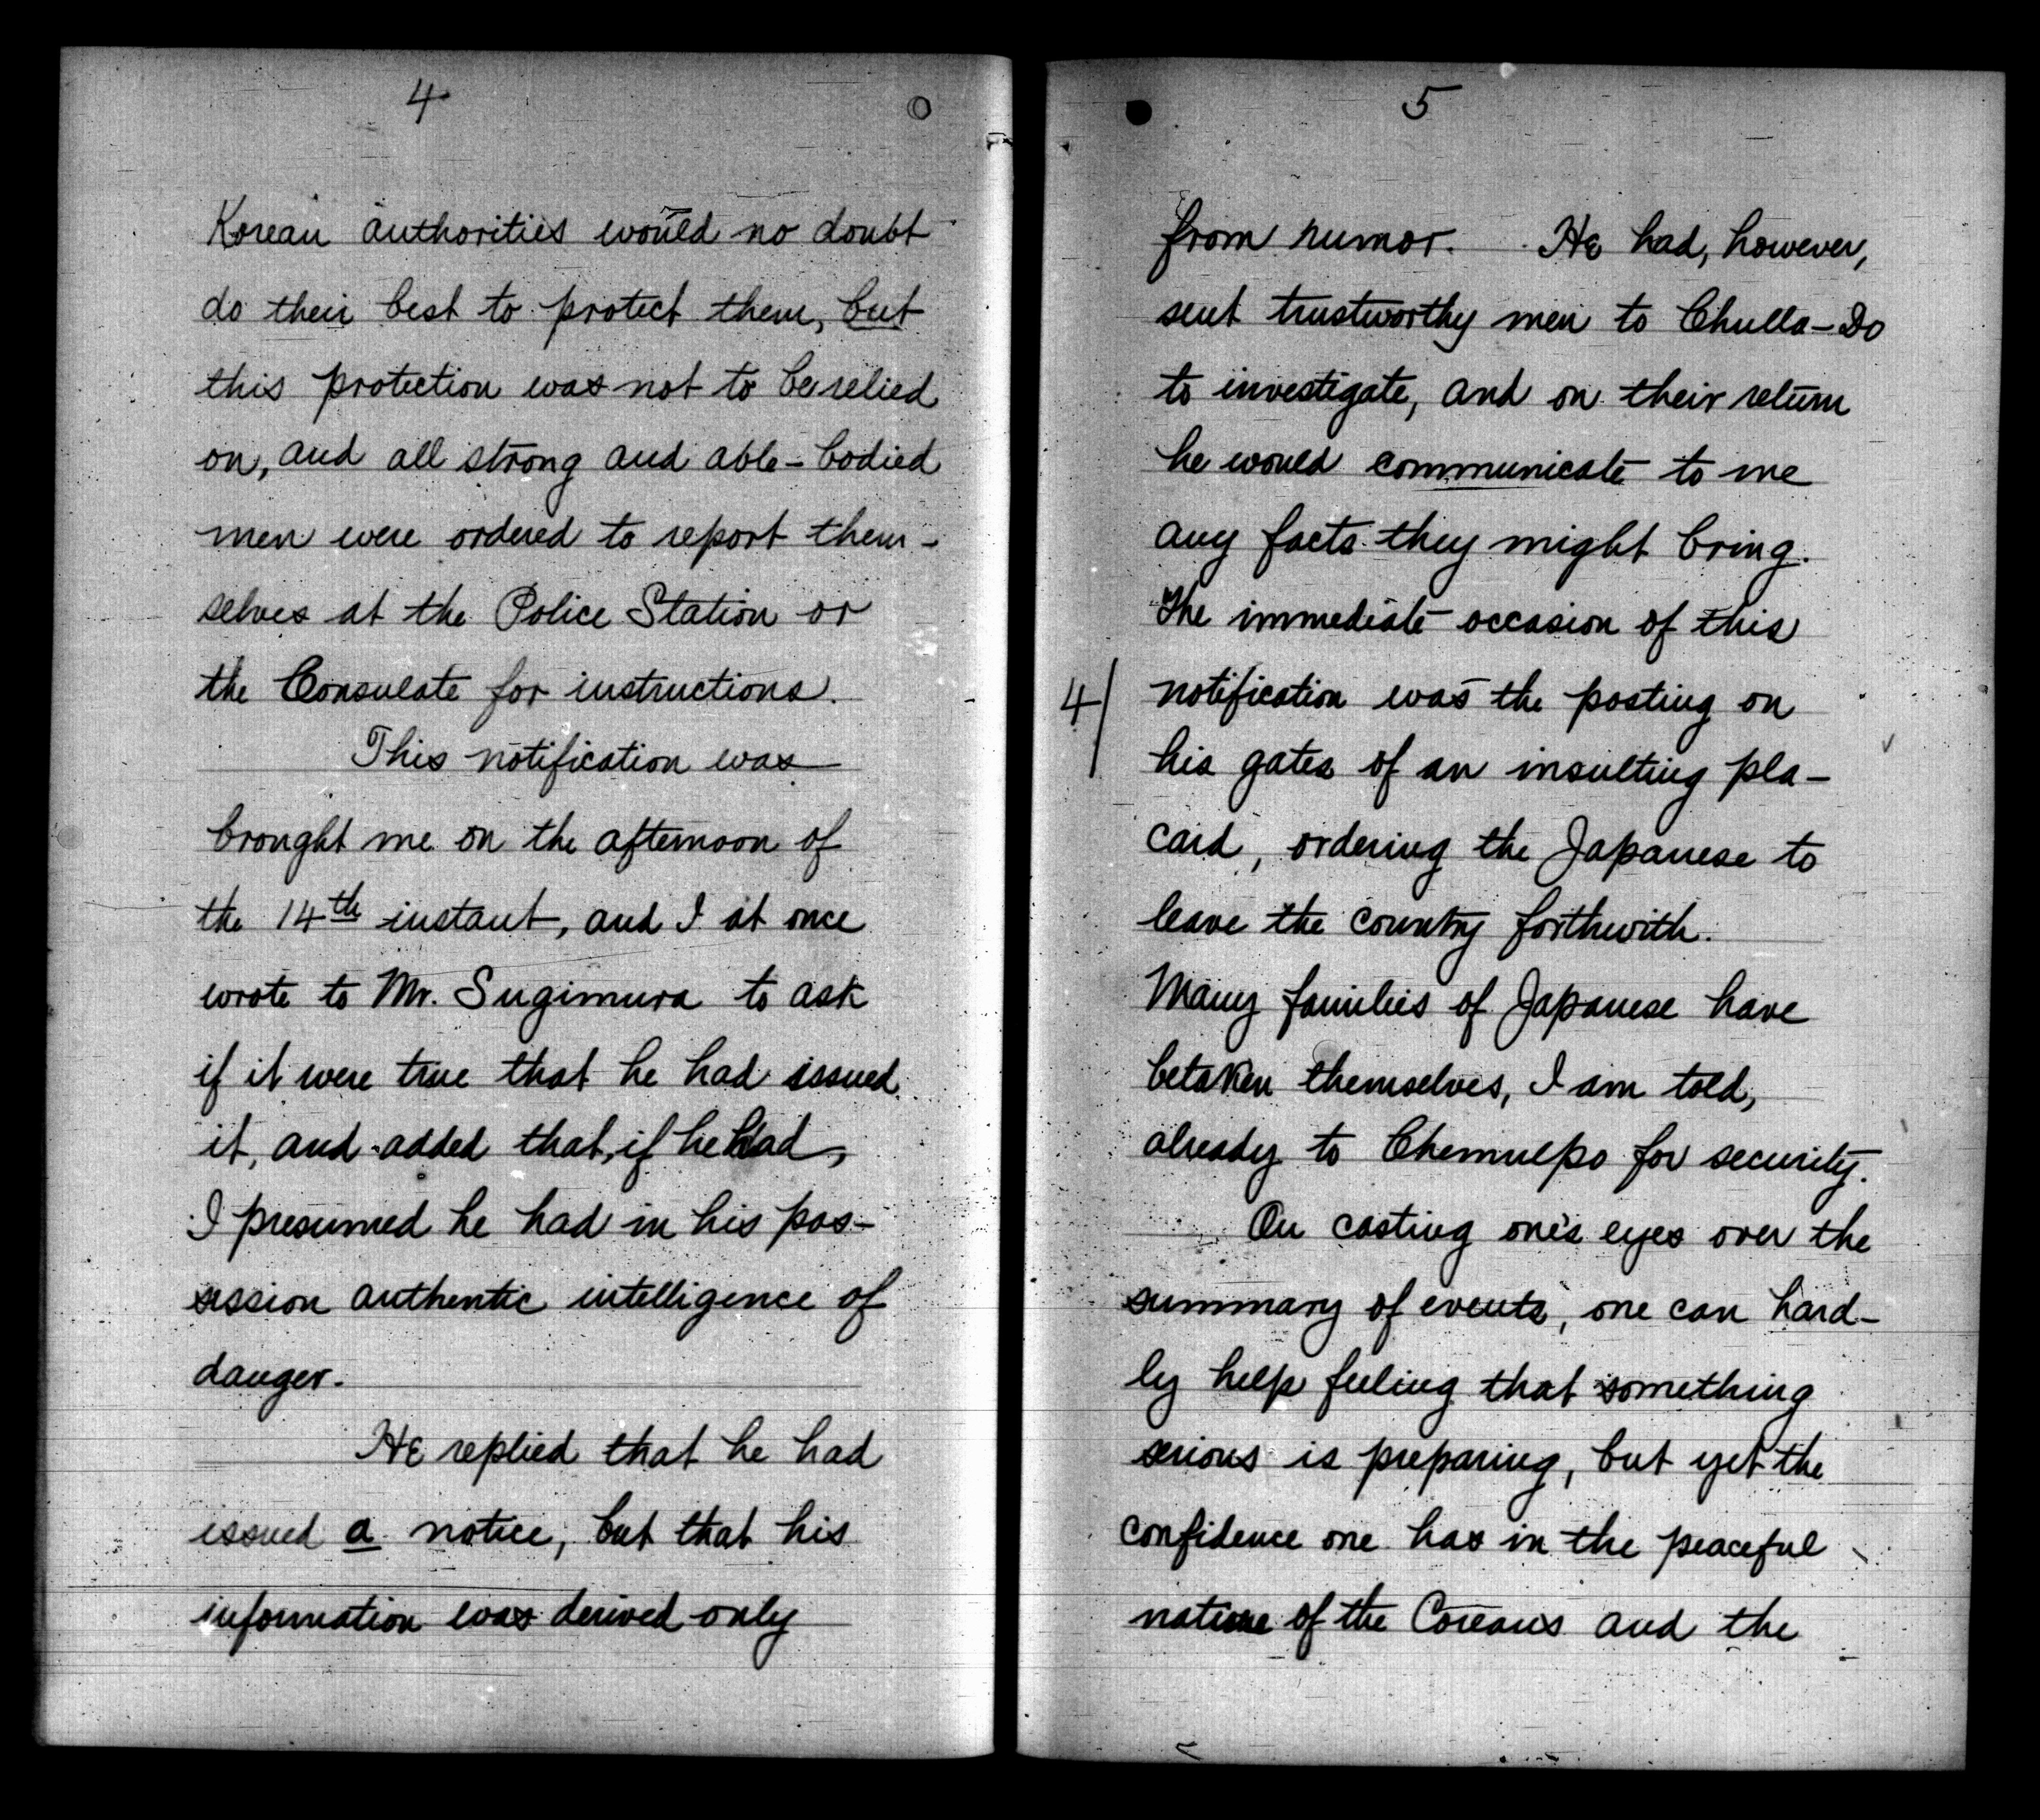 4
Korean authorities would no doubt
do their best to protect them, but
this protection was not to be relied
on, and all strong and able-bodied
men were ordered to report them-
selves at the Police Station or
the Consulate for instructions.
This notification was
brought me on the afternoon of
the 14th instant, and I at once
wrote to Mr. Sugimura to ask
if it were true that he had issued
it, and added that, if he had,
I presumed he had in his pos-
session authentic intelligence of
danger.
He replied that he had
issued a notice, but that his
information was derived only
5
from rumor. He had, however,
sent trustworthy men to Chulla-Do
to investigate, and on their return
he would communicate to me
any facts they might bring.
The immediate occasion of this
4/ notification was the posting on
his gates of an insulting pla-
card, ordering the Japanese to
leave the country forthwith.
Many families of Japanese have
betaken themselves, I am told,
already to Chemulpo for security.
On casting one's eyes over the
summary of events, one can hard-
ly help feeling that something
serious is preparing, but yet the
confidence one has in the peaceful
nature of the Coreans and the